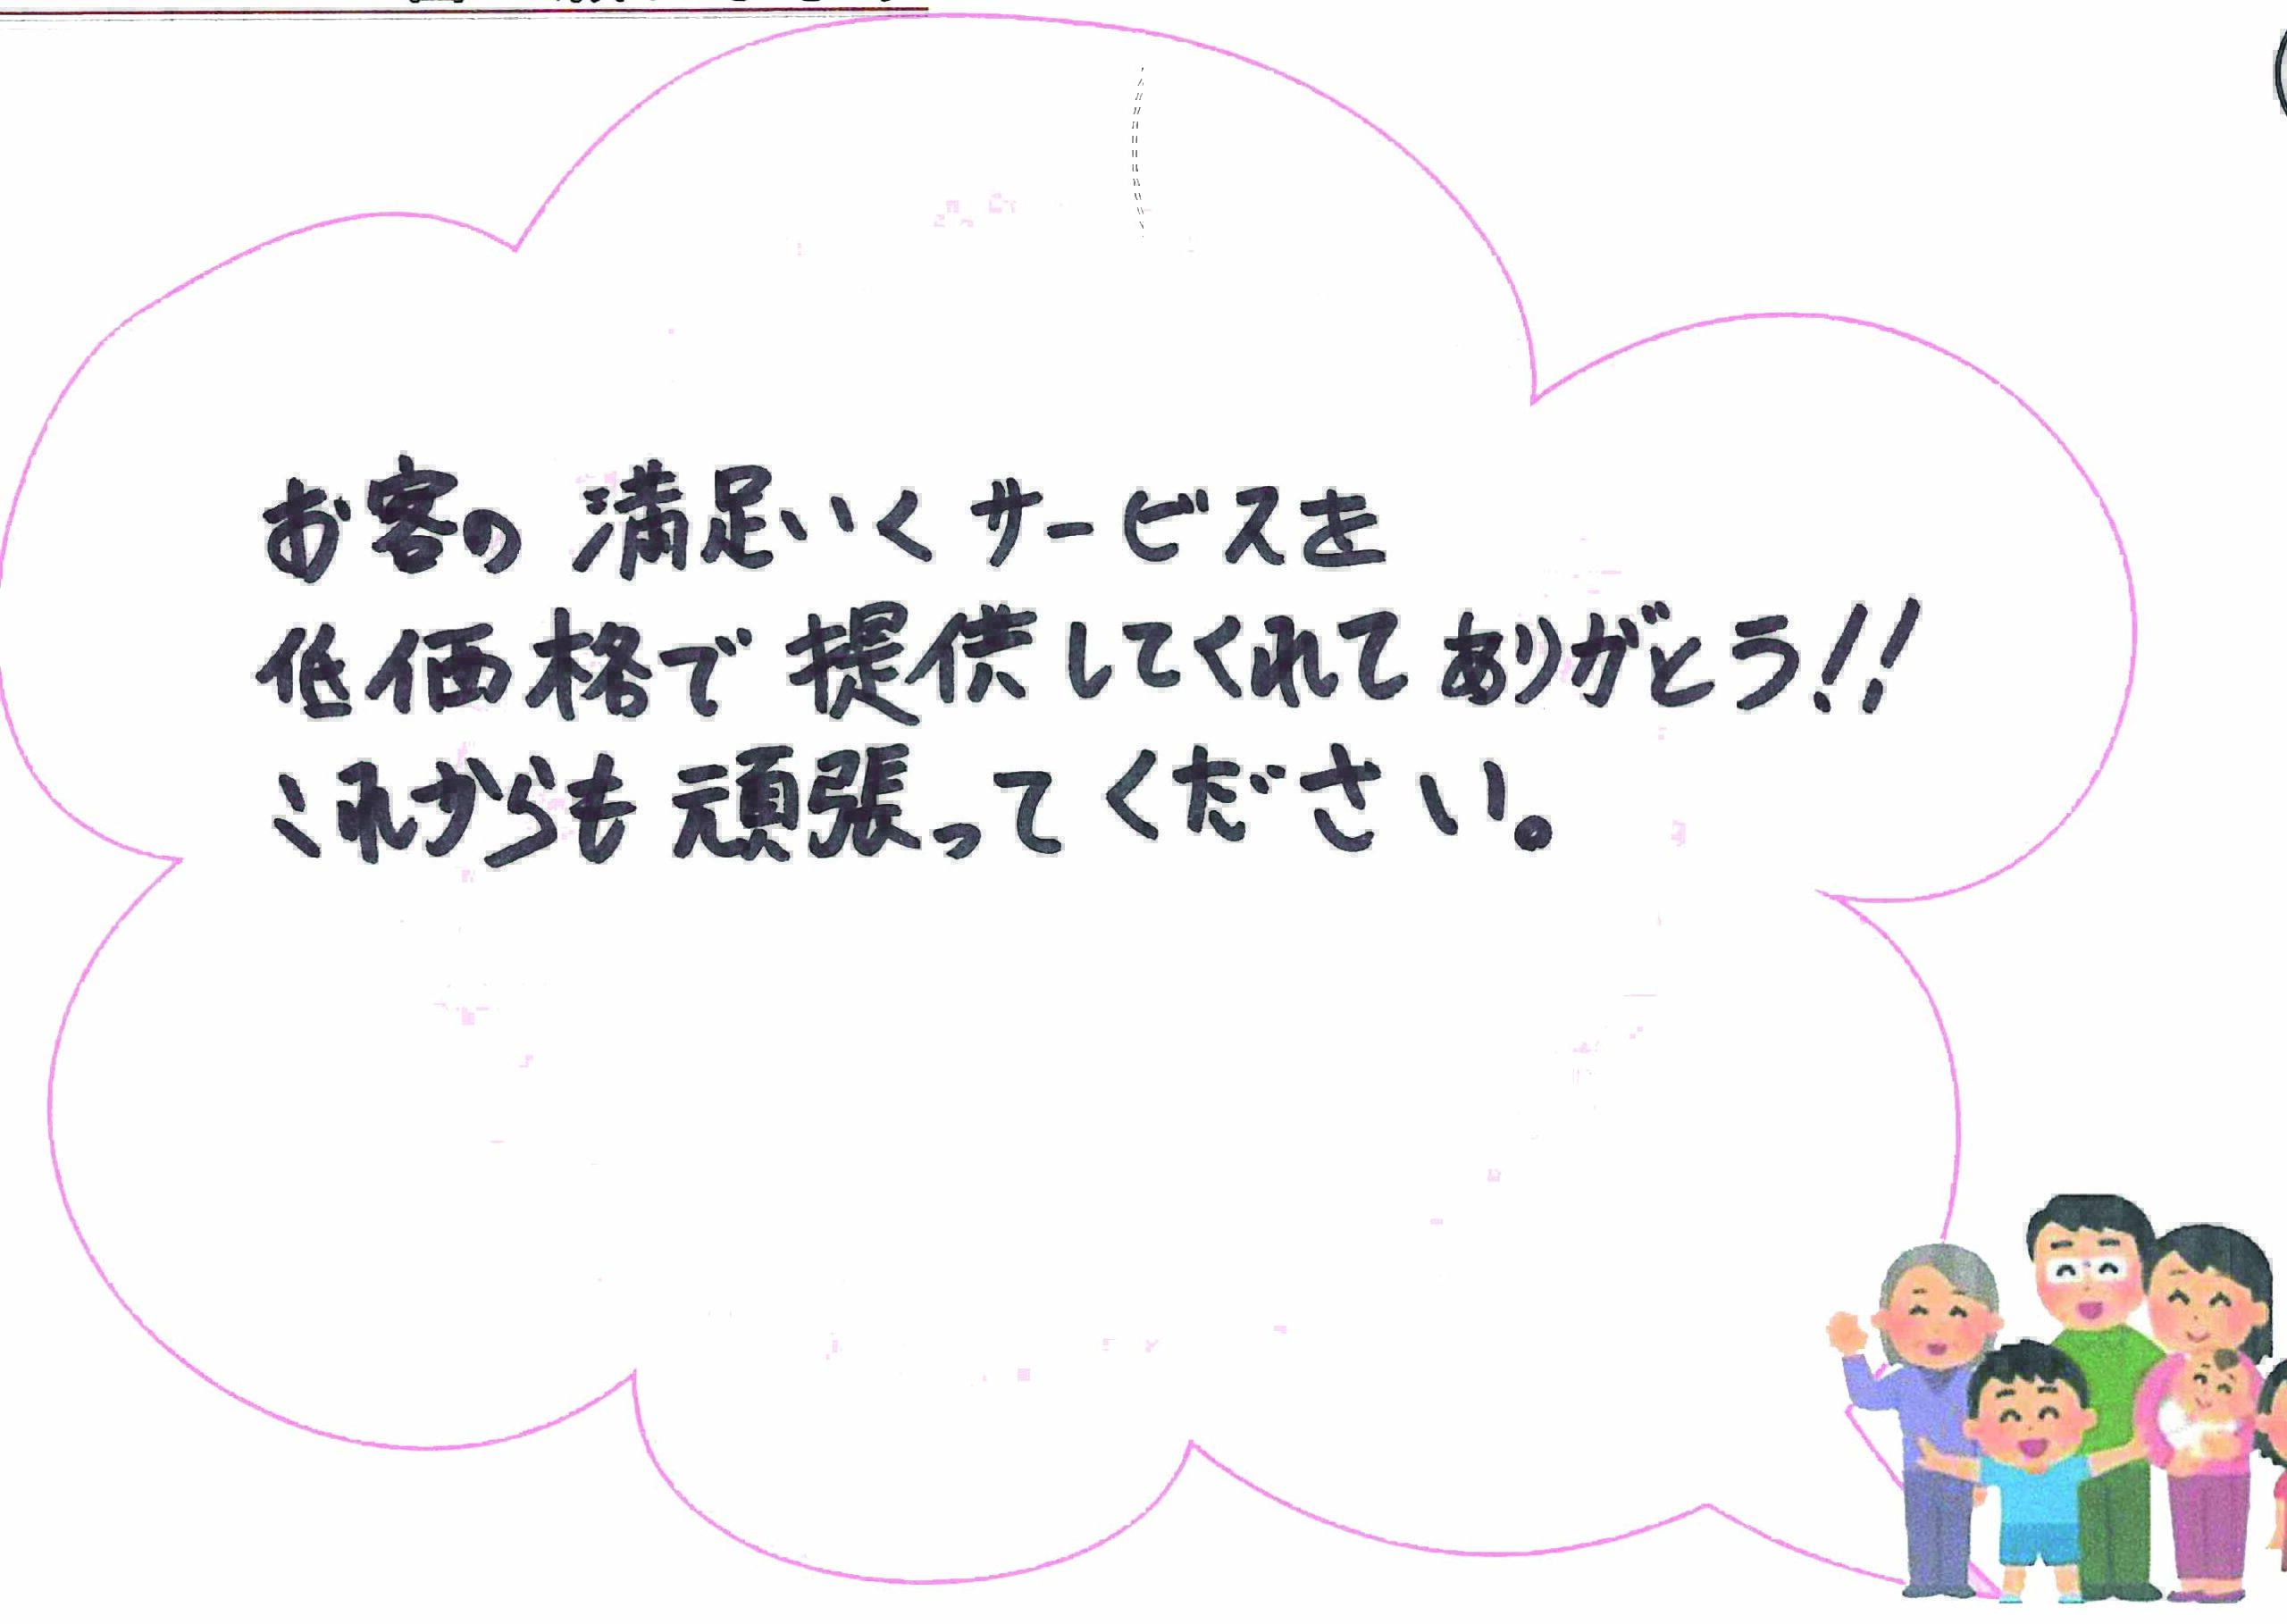 お客の 満足いくサービスを
低価格で 提供してくれて ありがとう!!
これからも 頑張って ください。